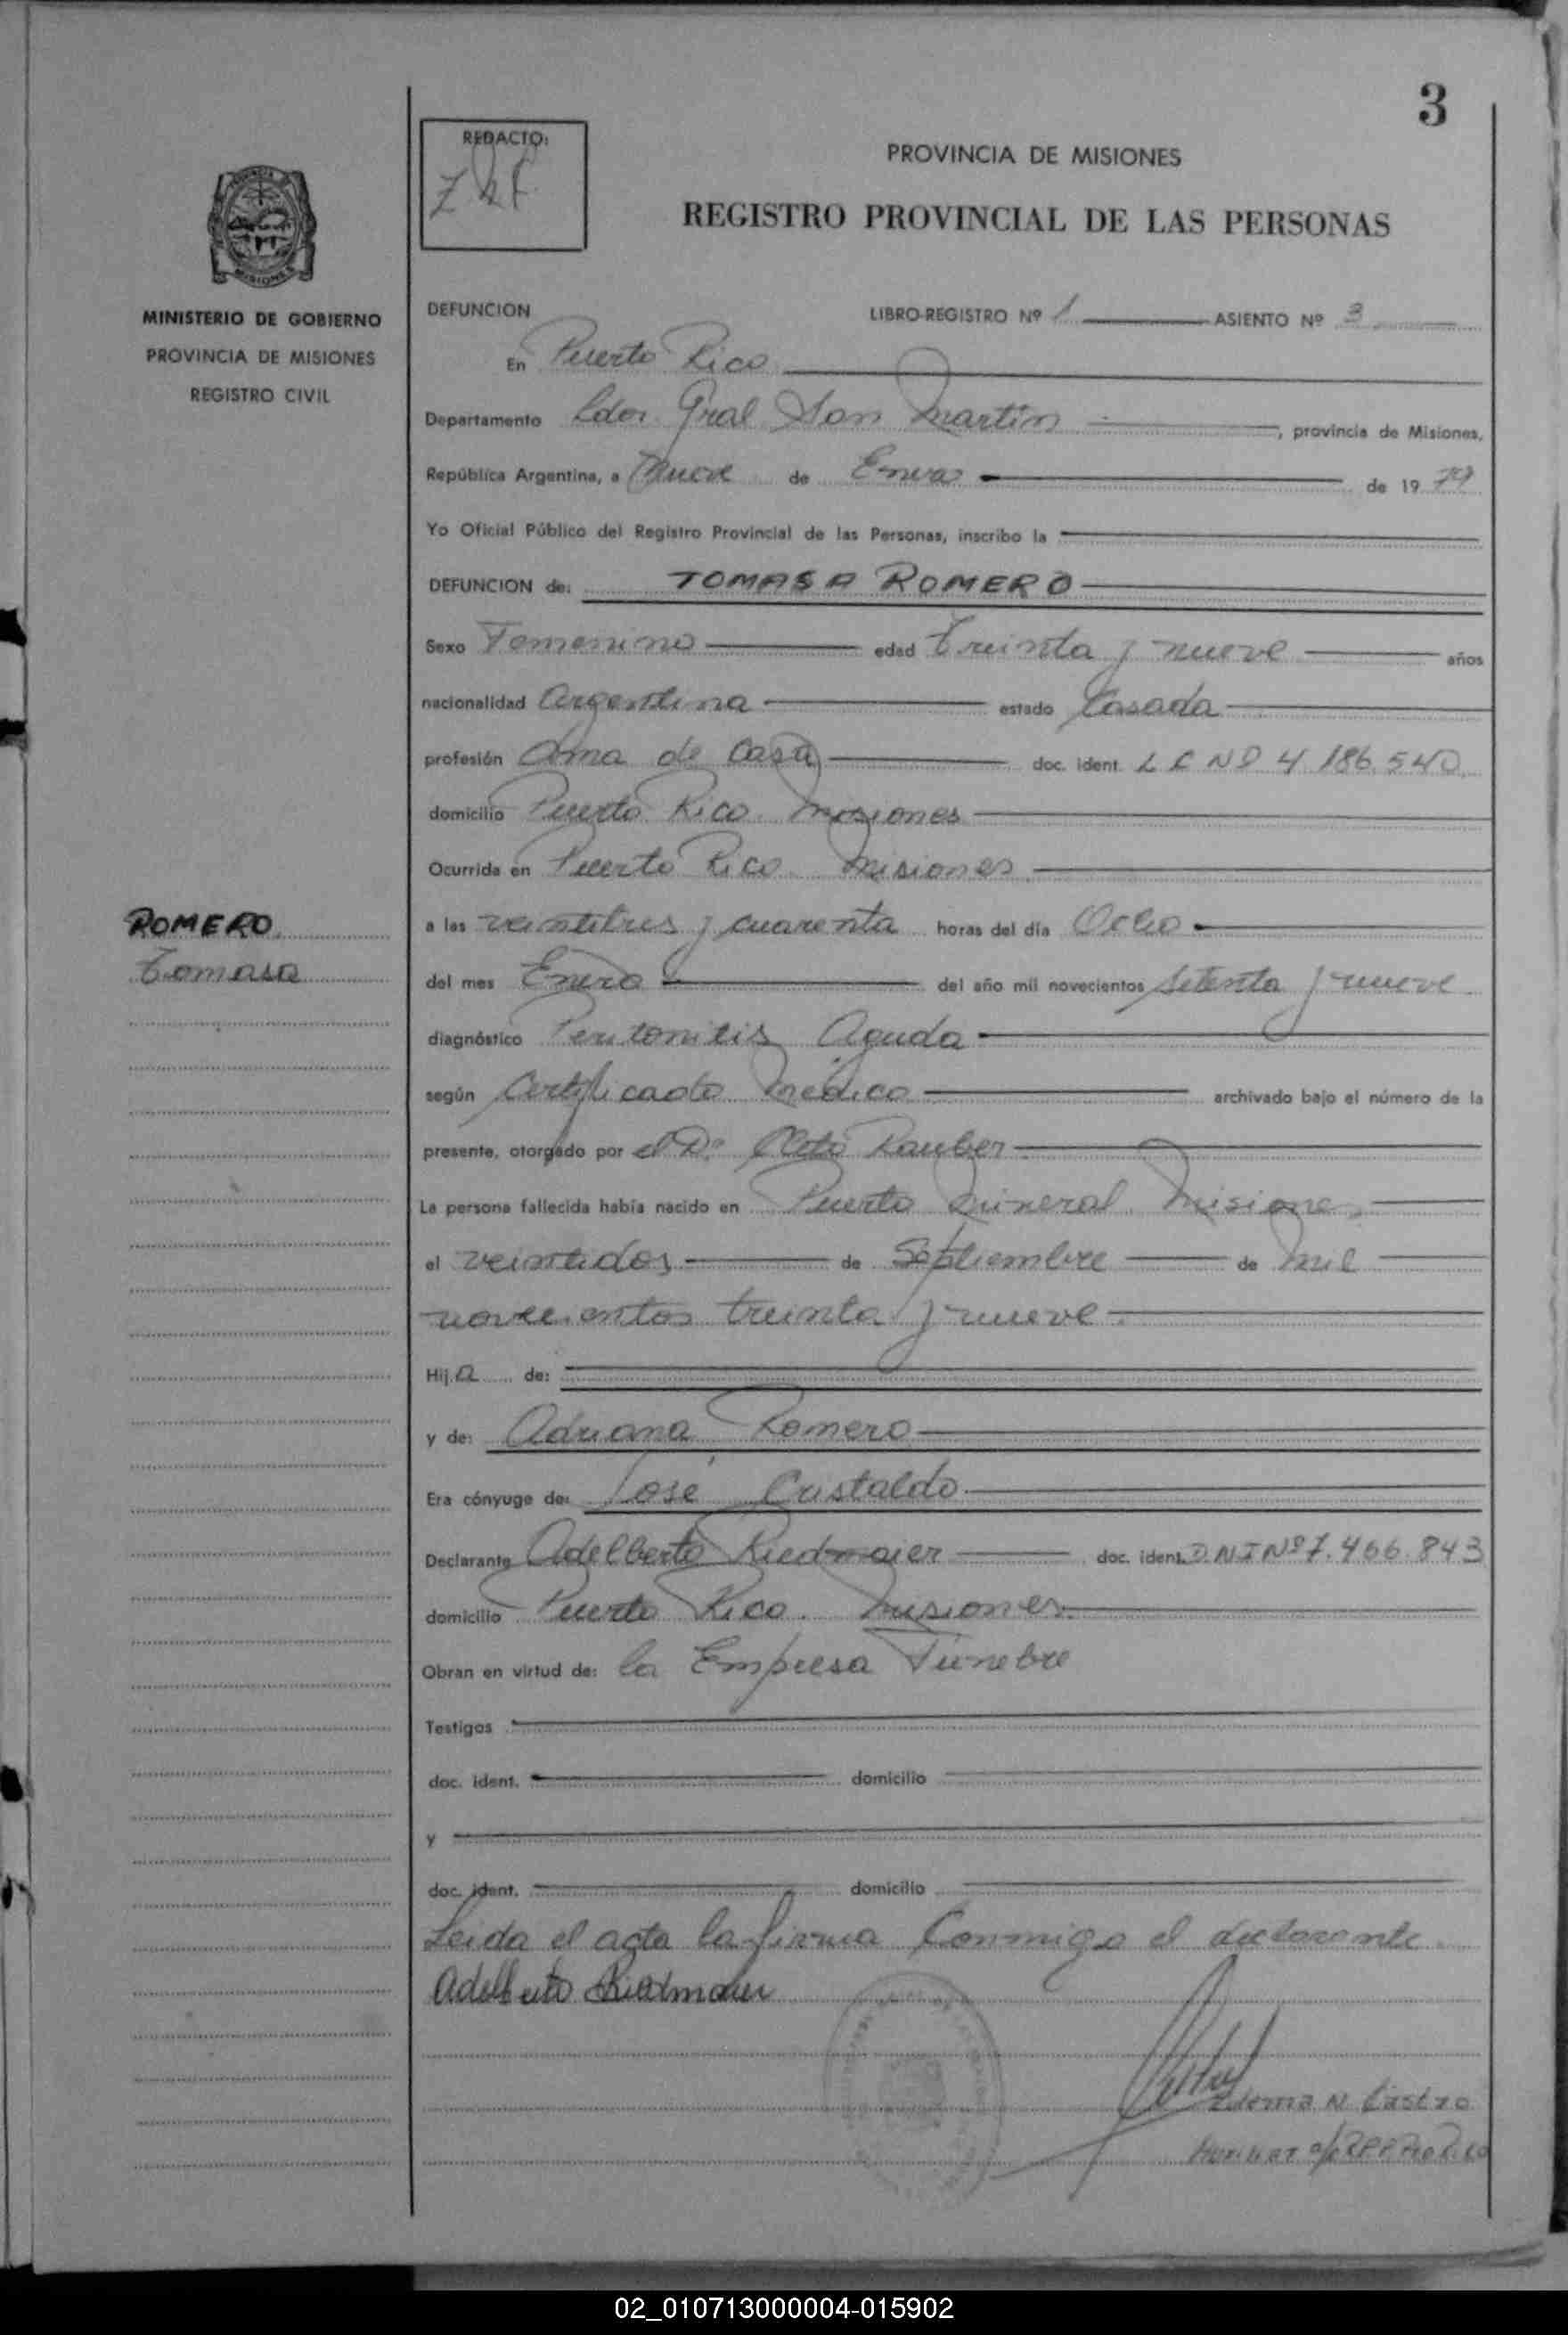 3
REDACTO:
PROVINCIA DE MISIONES
REGISTRO PROVINCIAL DE LAS PERSONAS
MISIONES
MINISTERIO DE GOBIERNO
PROVINCIA DE MISIONES
REGISTRO CIVIL
DEFUNCION LIBRO-REGISTRO Nº 1 ASIENTO Nº 3
En Puerto Rico
Departamento Ldor. Gral San Martin, provincia de Misiones,
República Argentina, a Nueve de Enero de 1979
Yo Oficial Público del Registro Provincial de las Personas, inscribo la
DEFUNCION de: TOMASA ROMERO
Sexo Femenino edad treinta y nueve años
nacionalidad Argentina estado Casada
profesión Ama de Casa doc. ident. L C Nº 4.186.540
domicilio Puerto Rico. Misiones
Ocurrida en Puerto Rico. Misiones
ROMERO
Tomasa
a las veintitres y cuarenta horas del día Ocho
del mes Enero del año mil novecientos setenta y nueve
diagnóstico Peritonitis Aguda
según Certificado Medico archivado bajo el número de la
presente, otorgado por el Dr. Rauber
La persona fallecida había nacido en Puerto Mineral. Misiones
el veintidos de Septiembre de mil
novecientos treinta y nueve.
Hija de:
y de: Adriana Romero
Era cónyuge de: José Cristaldo
Declarante Adelberto Riedmaier doc. ident. D.N.I Nº 7.466.843
domicilio Puerto Rico. Misiones.
Obran en virtud de: la Empresa Funebre
Testigos
doc. ident. domicilio
y
doc. ident. domicilio
Leida el acta la firma Conmigo el declarante.
Adelberto Riedmaier
N. Castro
02_010713000004-015902